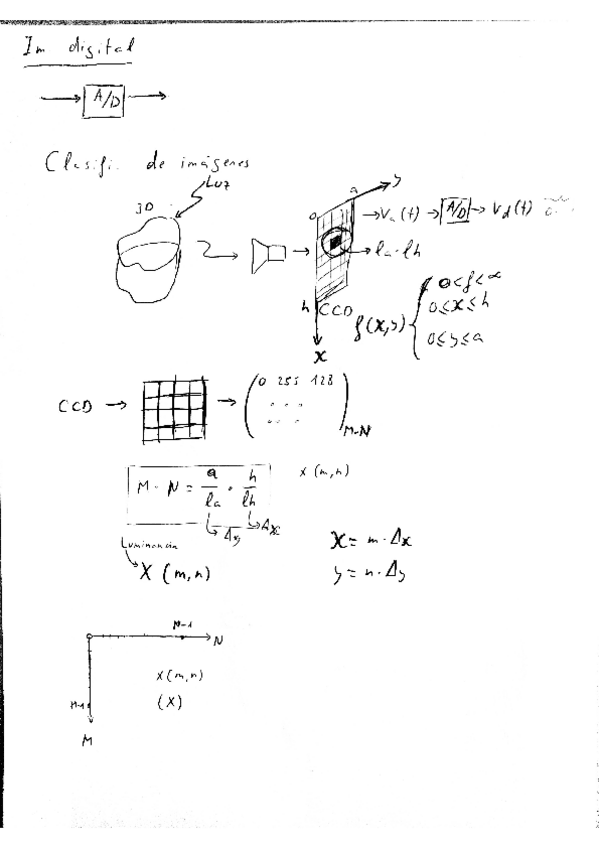 Im digital
A/D
Clasifi. de imágenes
Luz
3D
a y
0 → Va(t) → A/D → Vd(t)
la·lh
h CCD
x
f(x,y) { 0<f<∞
0≤x≤h
0≤y≤a
CCD → → ( 0 255 128
. . .
. . . ) M·N
M·N = a/la · h/lh
x(m,n)
Δy Δx
Luminancia
X(m,n)
x = m·Δx
y = n·Δy
N-1
N
x(m,n)
(X)
M-1
M